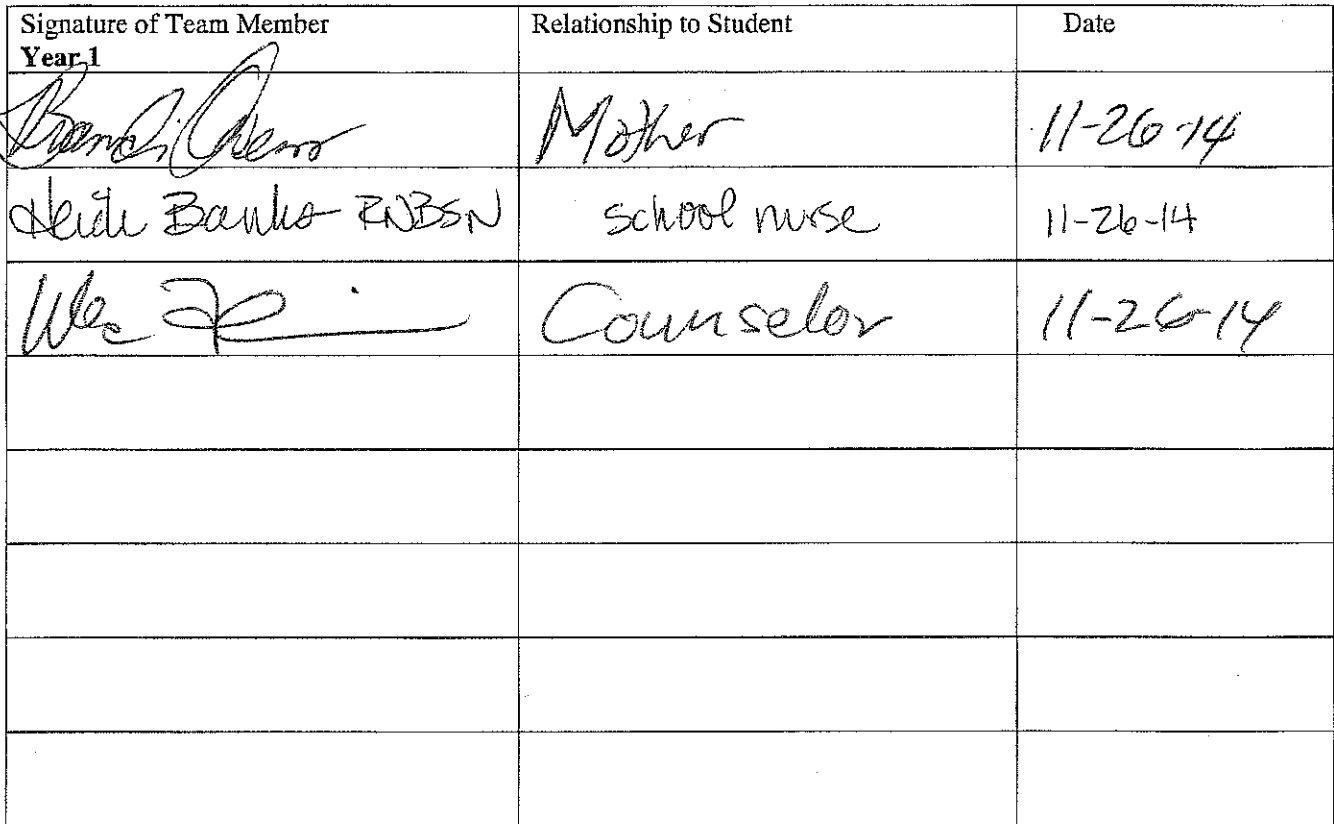 Signature of Team Member Relationship to Student Date
Year 1
Brandi Owens Mother 11-26-14
Heidi Banks RNBSN school nurse 11-26-14
Wes Counselor 11-26-14